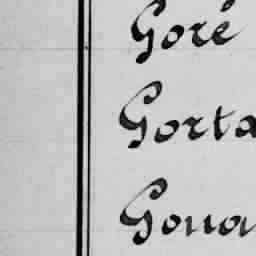 Goré
Gorta
Goua